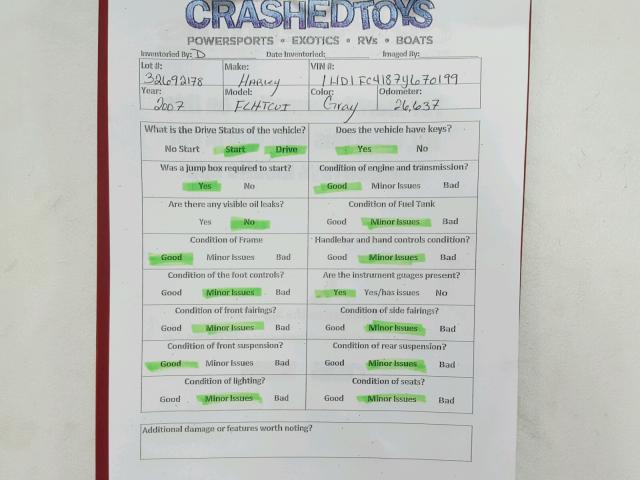 CRASHEDTOYS
POWERSPORTS • EXOTICS • RVs • BOATS
Inventoried By: D Date Inventoried: Imaged By:
Lot #: Make: VIN #:
32692178 HARLEY 1HD1FC4187Y670199
Year: Model: Color: Odometer:
2007 FLHTCUI Gray 26,637
What is the Drive Status of the vehicle? Does the vehicle have keys?
No Start Start Drive Yes No
Was a jump box required to start? Condition of engine and transmission?
Yes No Good Minor Issues Bad
Are there any visible oil leaks? Condition of Fuel Tank
Yes No Good Minor Issues Bad
Condition of Frame Handlebar and hand controls condition?
Good Minor Issues Bad Good Minor Issues Bad
Condition of the foot controls? Are the instrument guages present?
Good Minor Issues Bad Yes Yes/has issues No
Condition of front fairings? Condition of side fairings?
Good Minor Issues Bad Good Minor Issues Bad
Condition of front suspension? Condition of rear suspension?
Good Minor Issues Bad Good Minor Issues Bad
Condition of lighting? Condition of seats?
Good Minor Issues Bad Good Minor Issues Bad
Additional damage or features worth noting?